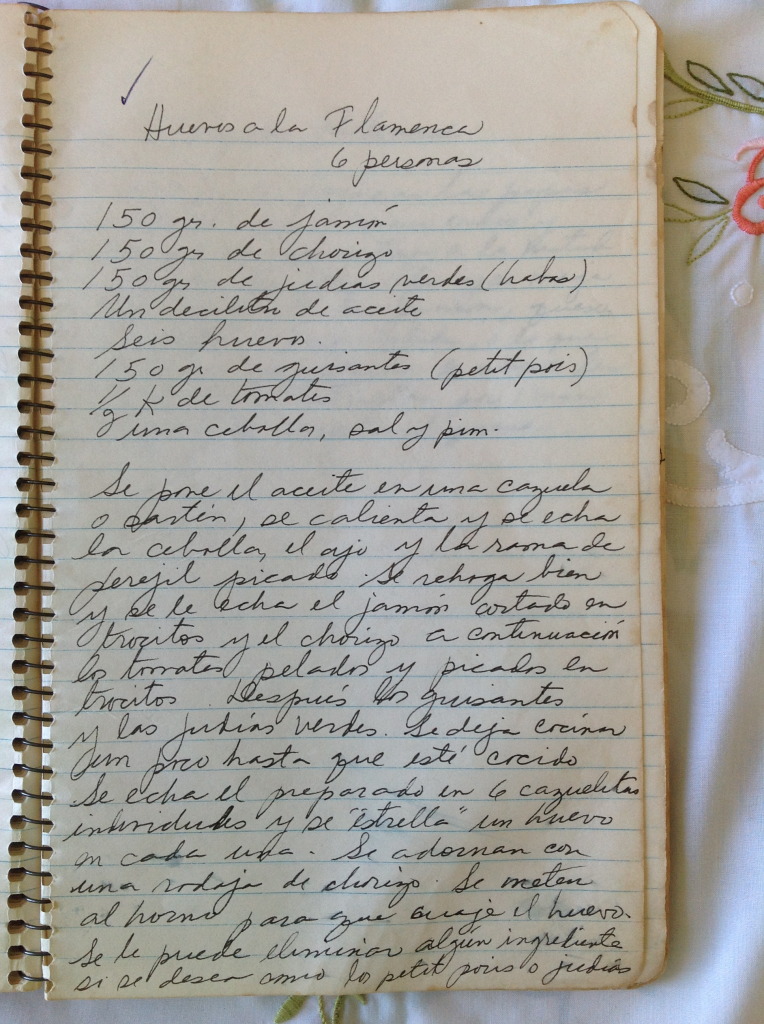 Huevos a la Flamenca
6 personas
150 gr. de jamón
150 grs de chorizo
150 grs de judías verdes (habas)
Un decilitro de aceite
Seis huevos.
150 gr de guisantes (petit pois)
1/2 K de tomates
una cebolla, sal y pim.
Se pone el aceite en una cazuela
o sartén, se calienta y se echa
la cebolla, el ajo y la rama de
perejil picado. Se rehoga bien
y se le echa el jamón cortado en
trocitos y el chorizo a continuación
los tomates pelados y picados en
trocitos. Después los guisantes
y las judías verdes. Se deja cocinar
un poco hasta que esté cocido
Se echa el preparado en 6 cazuelitas
individuales y se "estrella" un huevo
en cada una. Se adornan con
una rodaja de chorizo. Se meten
al horno para que cuaje el huevo.
Se le puede eliminar algún ingrediente
si se desea como los petit pois o judías